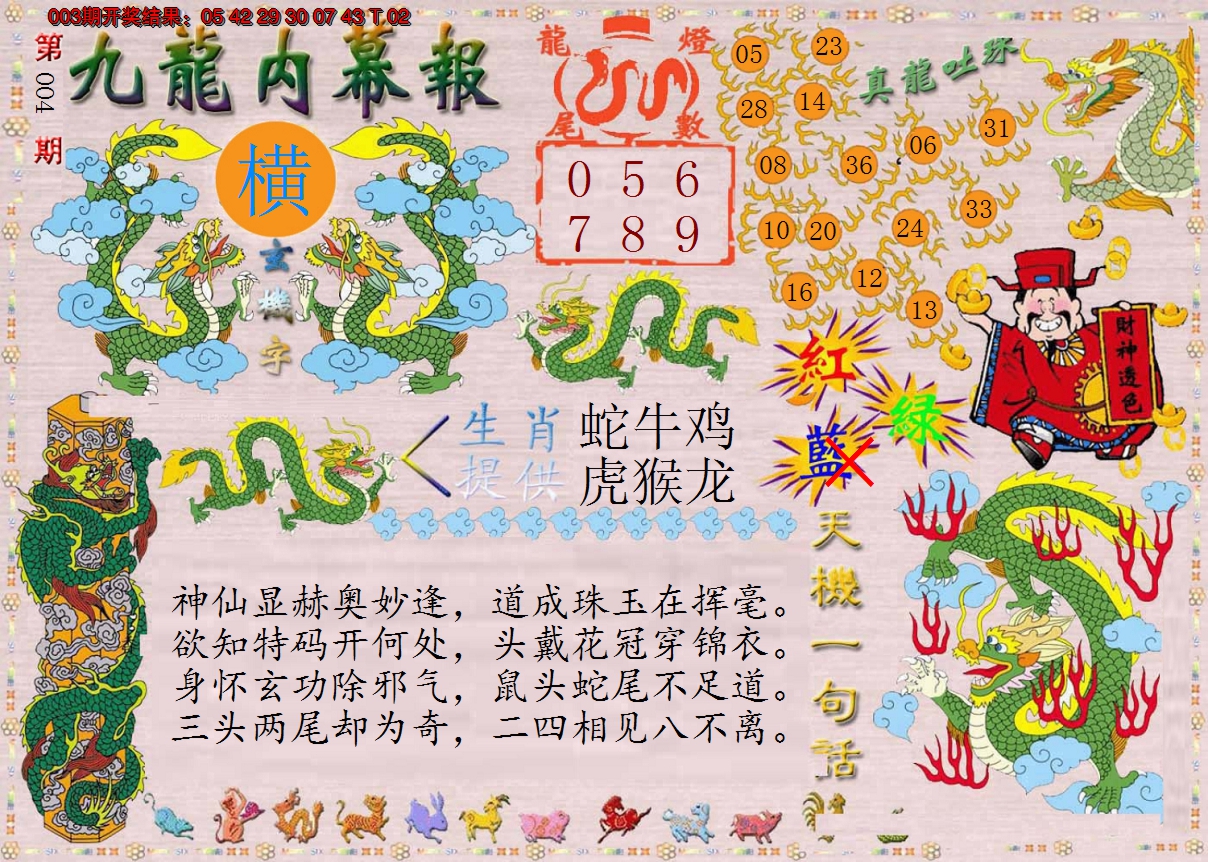 003期开奖结果：05 42 29 30 07 43 T 02
第004期
九龍内幕報
横
玄機字
龍燈
尾數
0 5 6
7 8 9
真龍吐珠
05 23
28 14
08 36 06 31
10 20 24 33
16 12 13
財神透色
紅
綠
藍
生肖 蛇牛鸡
提供 虎猴龙
天機一句話
神仙显赫奥妙逢，道成珠玉在挥毫。
欲知特码开何处，头戴花冠穿锦衣。
身怀玄功除邪气，鼠头蛇尾不足道。
三头两尾却为奇，二四相见八不离。